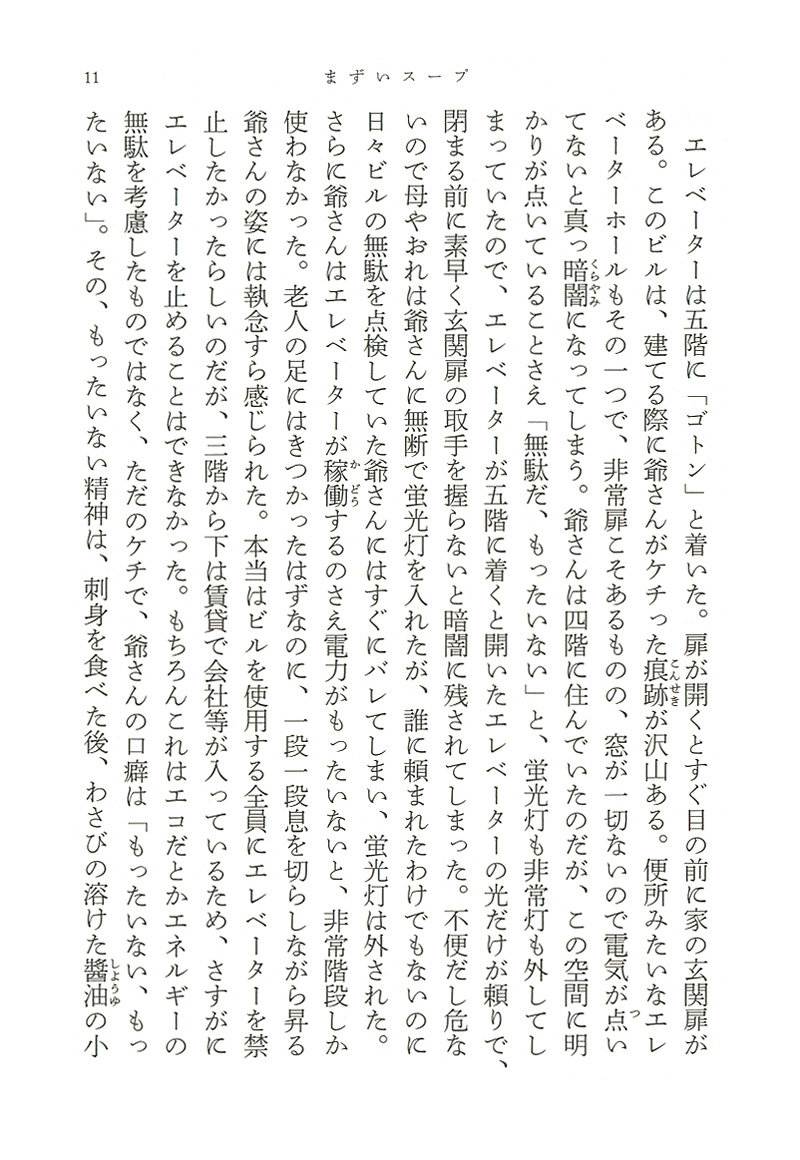 11
まずいスープ
エレベーターは五階に「ゴトン」と着いた。扉が開くとすぐ目の前に家の玄関扉が
ある。このビルは、建てる際に爺さんがケチった痕跡が沢山ある。便所みたいなエレ
とんせき
ベーターホールもその一つで、非常扉こそあるものの、窓が一切ないので電気が点い
つ
てないと真っ暗闇になってしまう。爺さんは四階に住んでいたのだが、この空間に明
くらやみ
かりが点いていることさえ「無駄だ、もったいない」と、蛍光灯も非常灯も外してし
まっていたので、エレベーターが五階に着くと開いたエレベーターの光だけが頼りで、
閉まる前に素早く玄関扉の取手を握らないと暗闇に残されてしまった。不便だし危な
いので母やおれは爺さんに無断で蛍光灯を入れたが、誰に頼まれたわけでもないのに
日々ビルの無駄を点検していた爺さんにはすぐにバレてしまい、蛍光灯は外された。
さらに爺さんはエレベーターが稼働するのさえ電力がもったいないと、非常階段しか
かどう
使わなかった。老人の足にはきつかったはずなのに、一段一段息を切らしながら昇る
爺さんの姿には執念すら感じられた。本当はビルを使用する全員にエレベーターを禁
止したかったらしいのだが、三階から下は賃貸で会社等が入っているため、さすがに
エレベーターを止めることはできなかった。もちろんこれはエコだとかエネルギーの
無駄を考慮したものではなく、ただのケチで、爺さんの口癖は「もったいない、もっ
たいない」。その、もったいない精神は、刺身を食べた後、わさびの溶けた醬油の小
しょうゆ